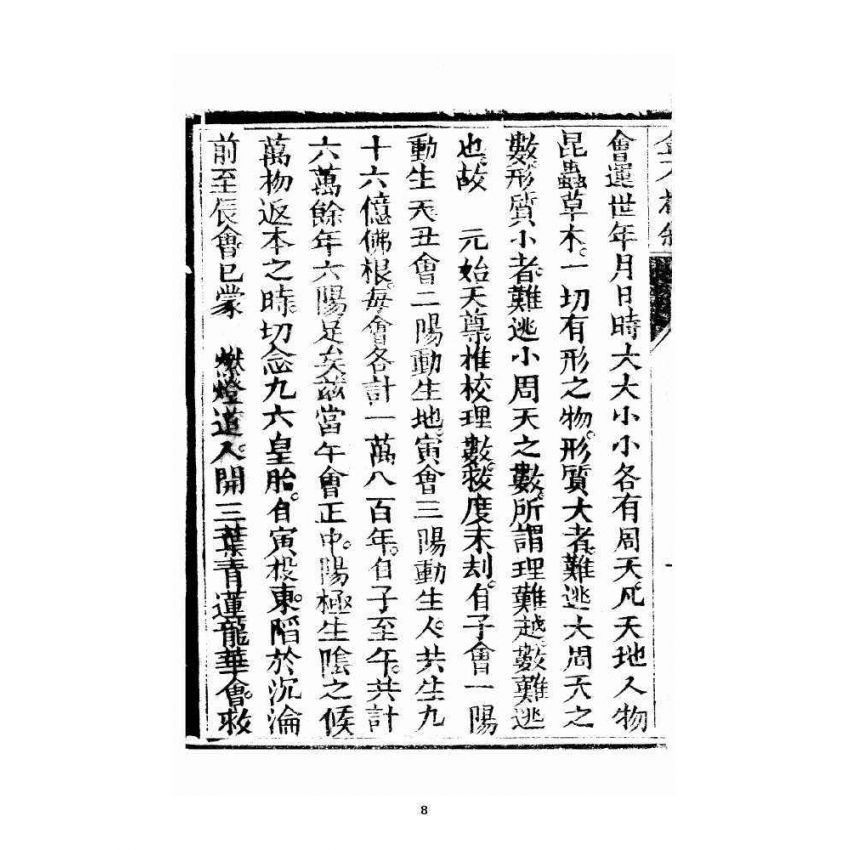 會運世年月日時大大小小各有周天凡天地人物
昆蟲草木。一切有形之物。形質大者。難逃大周天之
數。形質小者。難逃小周天之數。所謂理難越數難逃
也。故　元始天尊。推校理數。救度末刦。自子會一陽
動生天。丑會二陽動生地。寅會三陽動生人。共生九
十六億佛根。每會各計一萬八百年。自子至午。共計
六萬餘年。六陽足矣。茲當午會正中。陽極生陰之候
萬物返本之時。切念九六皇胎。自寅投東。陷於沉淪
前至辰會已蒙　燃燈道人。開三葉青蓮龍華會。救
8